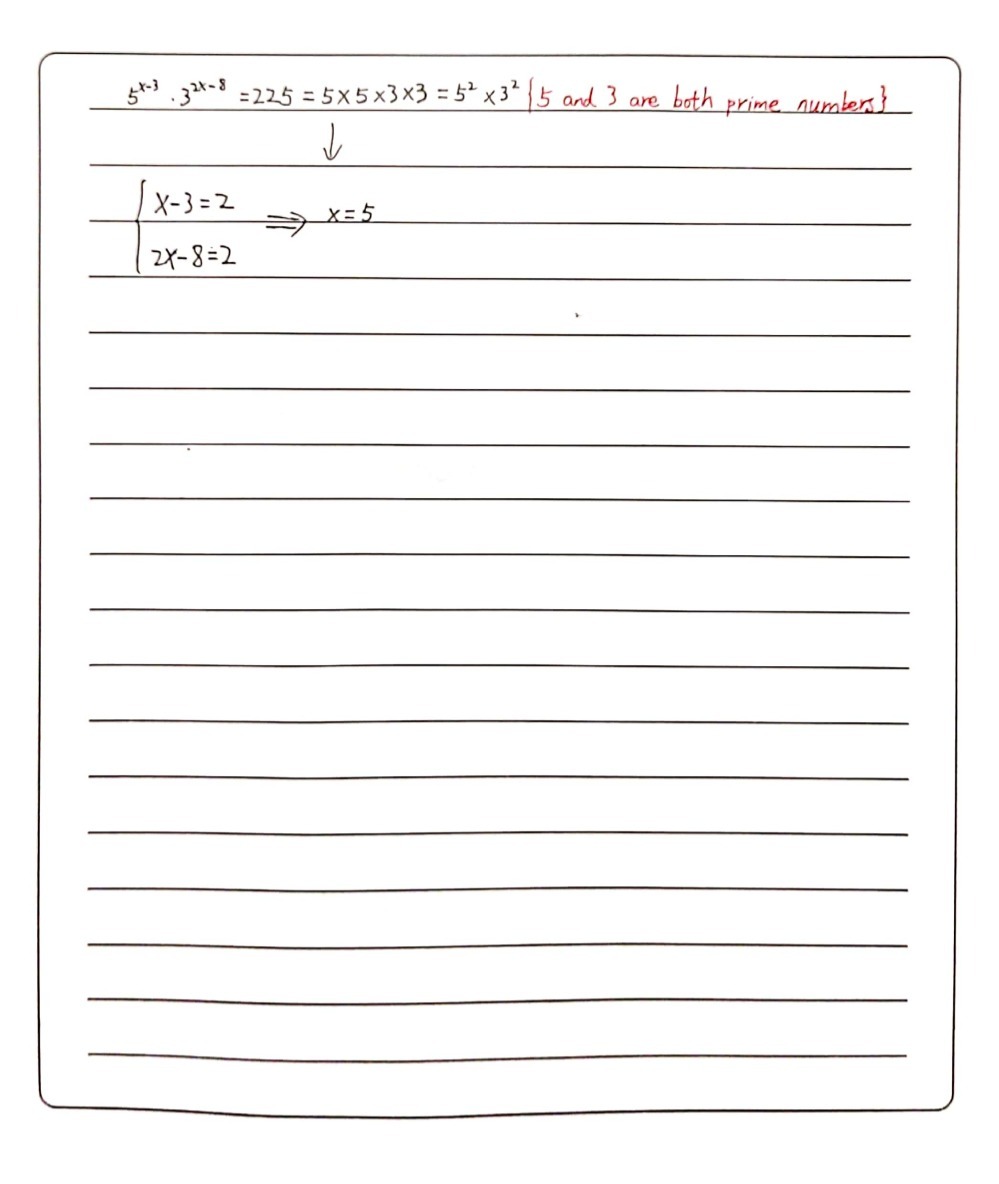 5^{x-3} · 3^{2x-8} = 225 = 5×5×3×3 = 5² × 3² {5 and 3 are both prime numbers}
↓
{ x-3=2 ⇒ x=5
2x-8=2